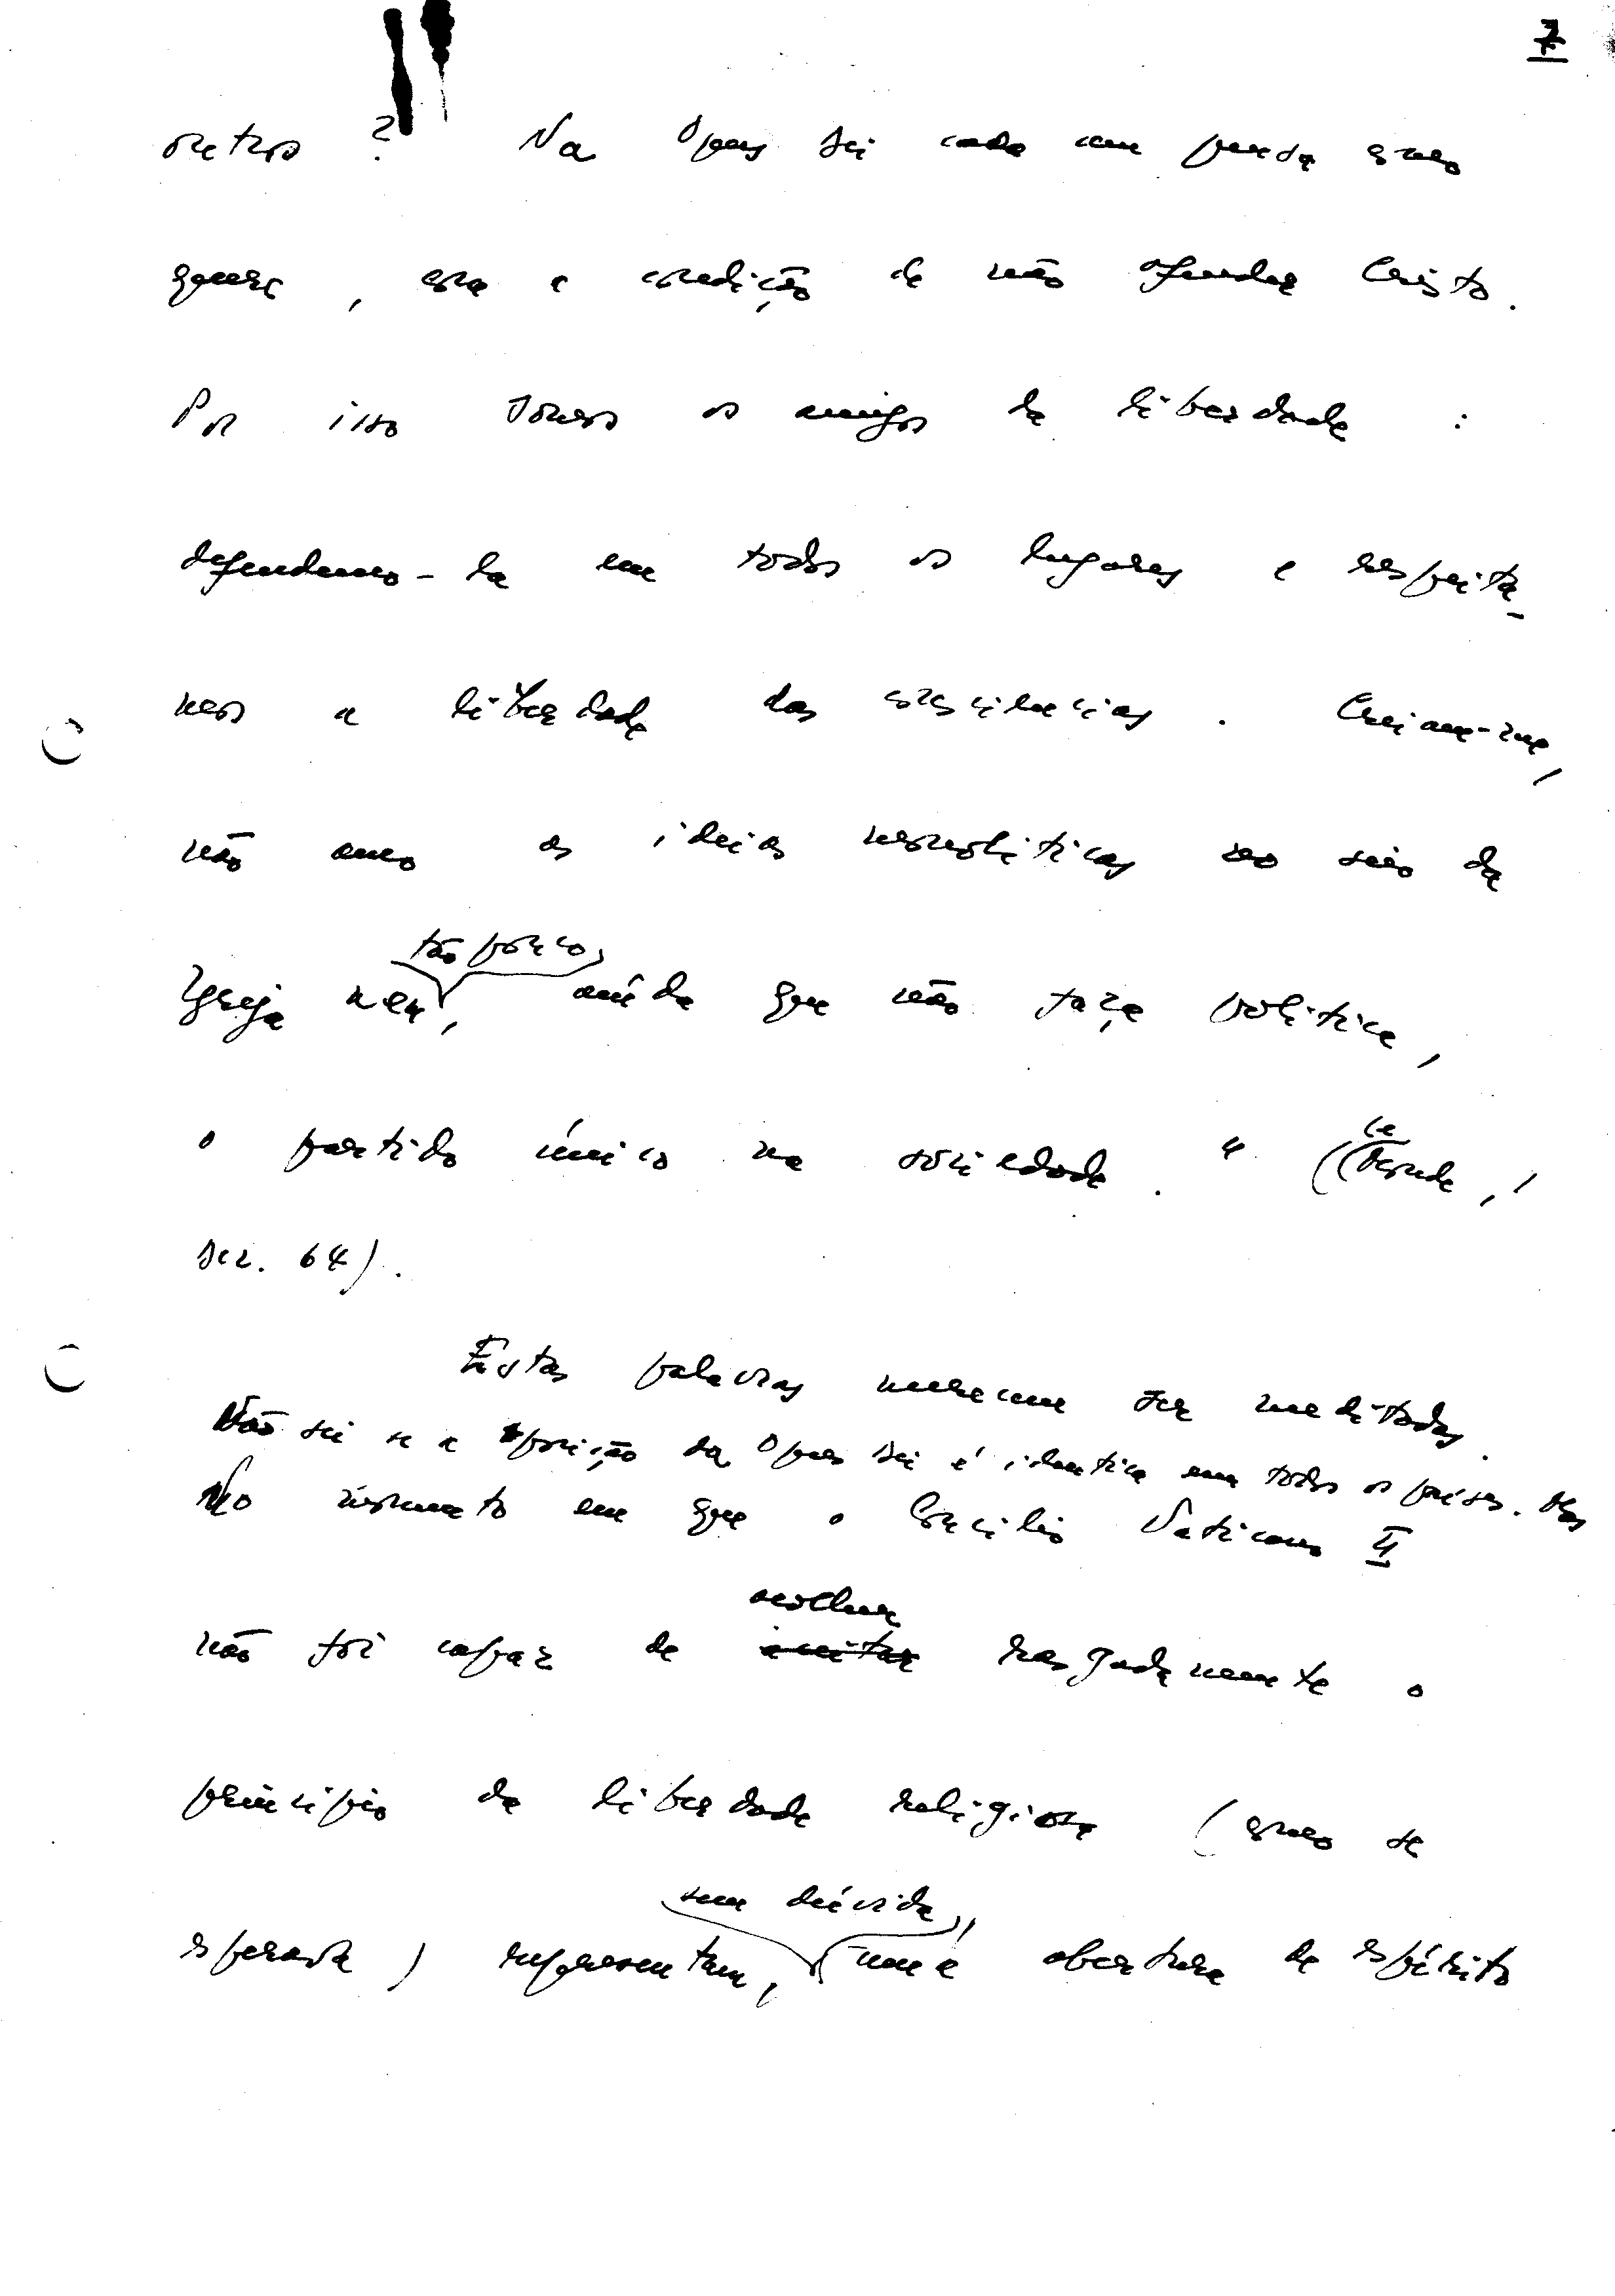 7
outros ? Na Opus Dei cada um pensa como
quer, com a condição de não ofender Cristo.
Por isso somos os amigos da liberdade :
defendemo-la em todos os lugares e respeita-
mos a liberdade das consciências. Creiam-me,
não amo as ideias monolíticas no seio da
Igreja nem, tão pouco, ainda que não faça política,
o partido único na sociedade. " (Le Monde,
Dez. 64).
Estas palavras merecem ser meditadas.
Não sei se a posição da Opus Dei é identica em todos os países. Mas
No momento em que o Concilio Vaticano II
não foi capaz de aceitar acolher rasgadamente o
princípio da liberdade religiosa (como se
esperava) representam, sem dúvida, uma abertura de espírito